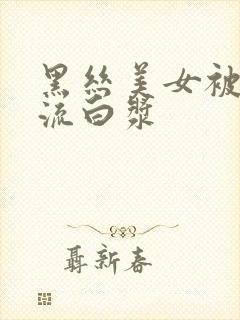 黑丝美女被
流白漿
聶新春